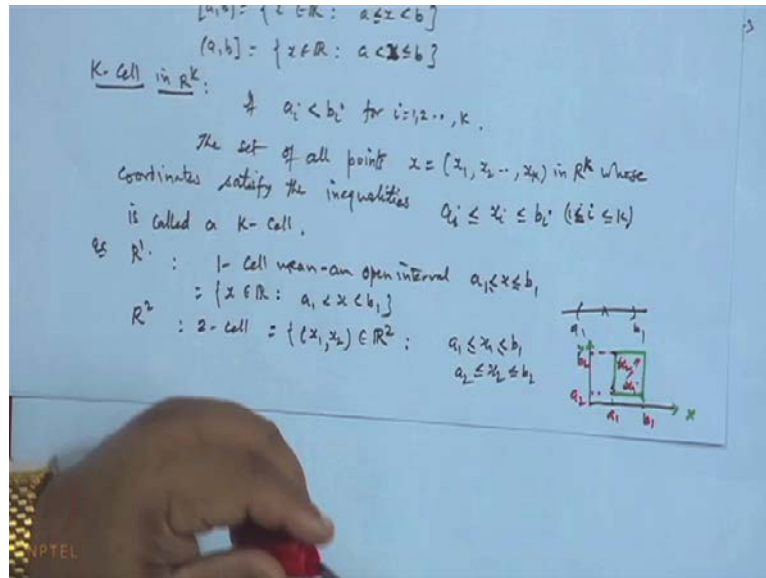 [a,b) = { x ∈ R : a ≤ x < b }
(a,b] = { x ∈ R : a < x ≤ b }
K-Cell in R^k :
If a_i < b_i for i=1,2..,K.
The set of all points x = (x_1, x_2 .., x_k) in R^k whose
coordinates satisfy the inequalities a_i ≤ x_i ≤ b_i (1 ≤ i ≤ K)
is called a K-Cell.
eg R^1 : 1-cell mean-an open interval a_1 ≤ x ≤ b_1
= { x ∈ R : a_1 < x < b_1 }
a_1 b_1
R^2 : 2-cell = { (x_1, x_2) ∈ R^2 : a_1 ≤ x_1 ≤ b_1
a_2 ≤ x_2 ≤ b_2
b_2
a_2
a_1 b_1 x
NPTEL